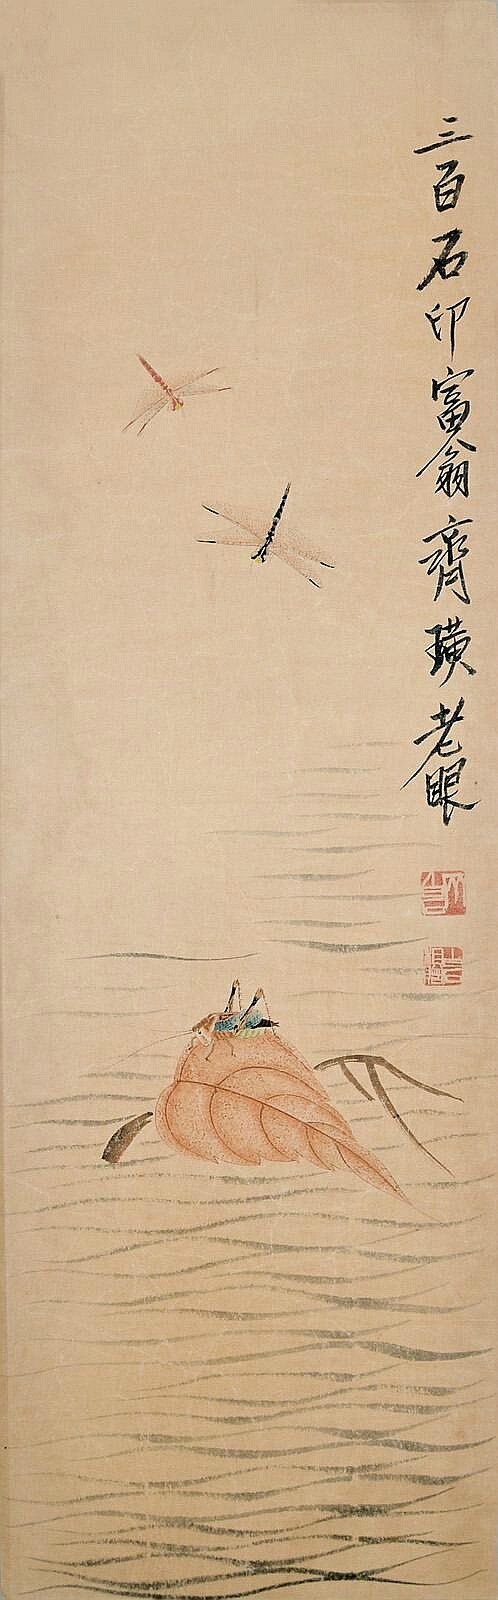 三百石印富翁齊璜老眼